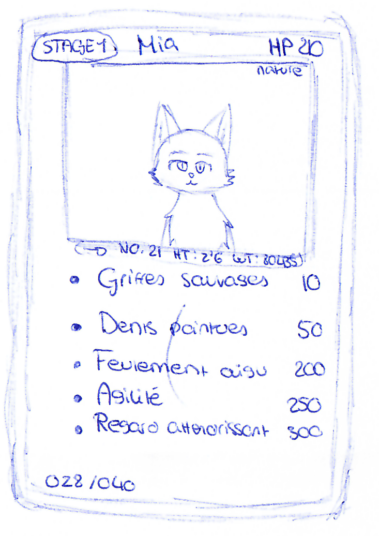 STAGE 1 Mia HP 20
nature
NO. 21 HT: 2'6 WT: 80LBS
Griffes sauvages 10
Dents pointues 50
Feulement aigu 200
Agilité 250
Regard attendrissant 300
028/040